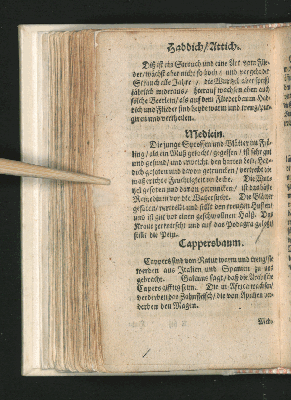 Haddich/Attich.
Diß ist ein Strauch und eine Art vom Flie-
der/wächst aber nicht so hoch/ und vergehet der
Strauch alle Jahre/ die Wurzel aber sprist
jährlich wiederaus/ hierauf wachsen eben auch
solche Beerlein/als auf dem Fliederbaum. Had-
dich und Flieder sind beyde warm und treug/zie-
gen und vertheilen.
Medicin.
Die junge Sprossen und Blätter im Früh-
ling/als ein Muß gekocht/gegessen/ ist sehr gut
und gesund/und erweicht den harten Leib. Had-
dich gesoten und davon getruncken/ verzehrt
wässerichte Feuchtigkeit der Leber. Die Wur-
zel gesoden und davon getruncken/ ist das beste
Remedium vor die Wassersucht. Die Blätter
gesoten/vertreibt und stillt den treugen Husten/
und ist gut vor einen geschwollnen Halß. Das
Kraut zerknirscht und auf das Podagra gelegt/
stillt die Pein.
Cappersbaum.
Cappers sind von Natur warm und treug/sie
werden aus Italien und Spanien zu uns
gebracht. Galenus sagt/daß die Arabische
Capers giftig seyn. Die in Africa wachsen/
verderben das Zahnfleisch/ die von Apulien
verderben den Magen.